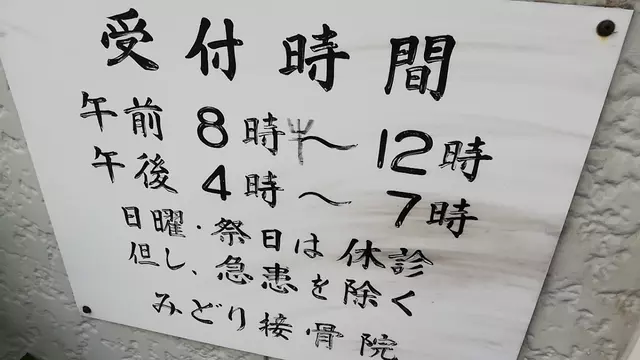 受付時間
午前 8時半〜12時
午後 4時〜7時
日曜・祭日は休診
但し、急患を除く
みどり接骨院